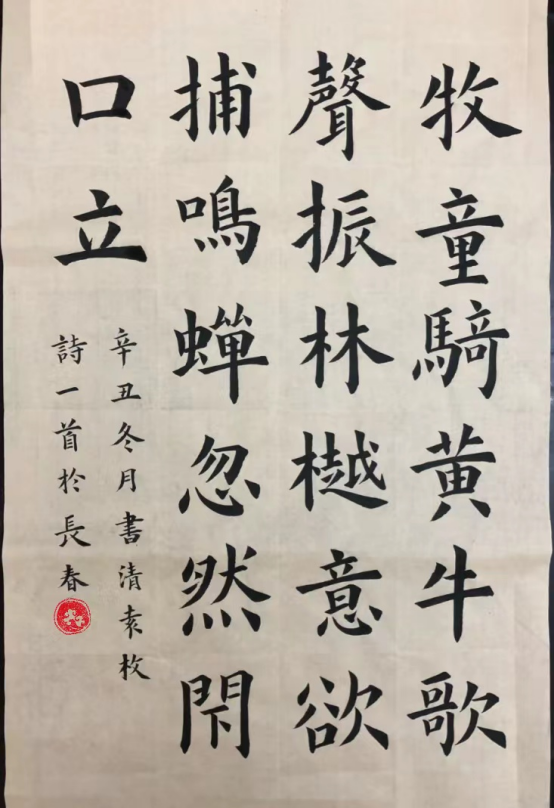 牧童騎黄牛歌
聲振林樾意欲
捕鳴蟬忽然閇
口立
辛丑冬月書清袁枚
詩一首於長春